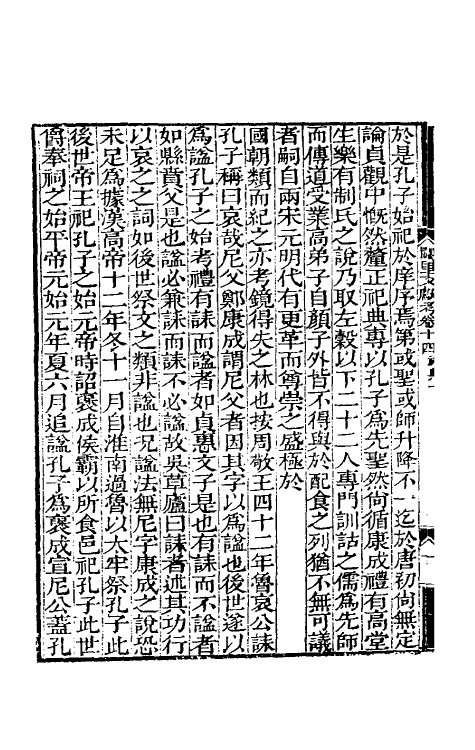 於是孔子始祀於庠序焉第或聖或師升降不一迄於唐初尙無定
論貞觀中慨然釐正祀典專以孔子爲先聖然尙循康成禮有高堂
生樂有制氏之說乃取左穀以下二十二人專門訓詁之儒爲先師
而傳道受業高弟子自顏子外皆不得與於配食之列猶不無可議
者嗣自兩宋元明代有更革而尊崇之盛極於
國朝類而紀之亦考鏡得失之林也按周敬王四十二年魯哀公誄
孔子稱曰哀哉尼父鄭康成謂尼父者因其字以爲諡也後世遂以
爲諡孔子之始考禮有誄而諡者如貞惠文子是也有誄而不諡者
如縣賁父是也諡必兼誄而誄不必諡故吳草廬曰誄者述其功行
以哀之之詞如後世祭文之類非諡也况諡法無尼字康成之說恐
未足爲據漢高帝十二年冬十一月自淮南過魯以大牢祭孔子此
後世帝王祀孔子之始元帝時詔襃成侯霸以所食邑祀孔子此世
爵奉祠之始平帝元始元年夏六月追諡孔子爲襃成宣尼公蓋孔